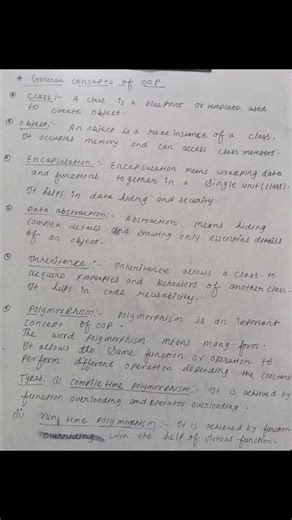 * General concepts of OOP
Class :- A class is a blueprint or template used
to create object.
Object :- An object is a real instance of a class.
It occupies memory and can access class members.
Encapsulation :- Encapsulation means wrapping data
and functions together in a single unit (class).
It helps in data hiding and security.
Data abstraction :- Abstraction means hiding
complex details and showing only essential details
of an object.
Inheritance :- Inheritance allows a class to
acquire properties and behaviors of another class.
It helps in code reusability.
Polymorphism :- Polymorphism is an important
concept of OOP.
The word polymorphism means many form.
It allows the same function or operation to
perform different operation depending the constant
Types: (i) Compile time polymorphism :- It is achieved by
function overloading and operator overloading.
(ii) run time polymorphism :- It is achieved by function
overriding with the help of virtual function.